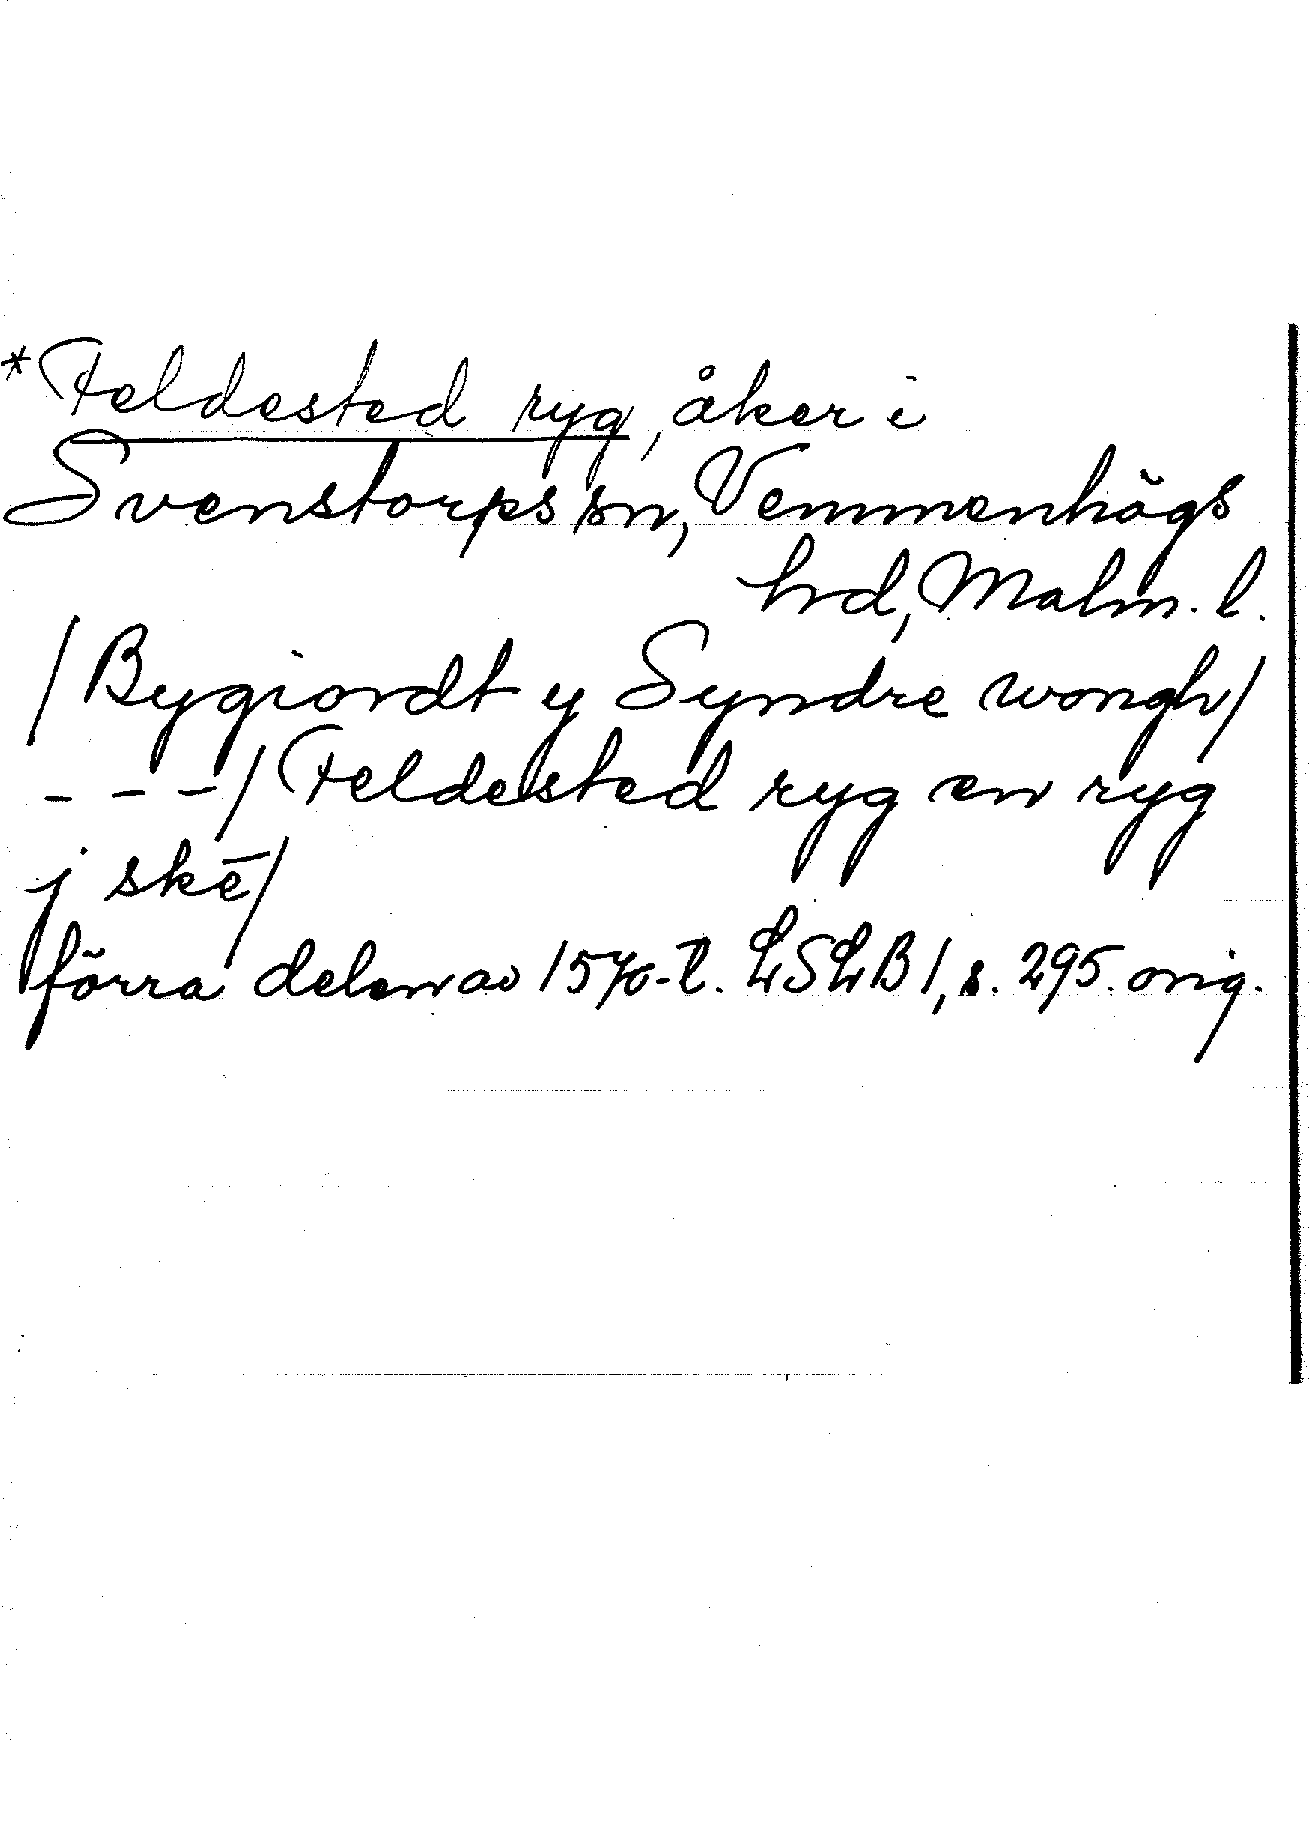 *Feldested ryg, åker i
Svenstorps sn, Vemmenhögs
hrd, Malm. l.
/Bygiordt y Syndre wongh/
- - -/ Feldested ryg en ryg
j skē/
förra delen av 1570-t. LSLB 1, s. 295. orig.